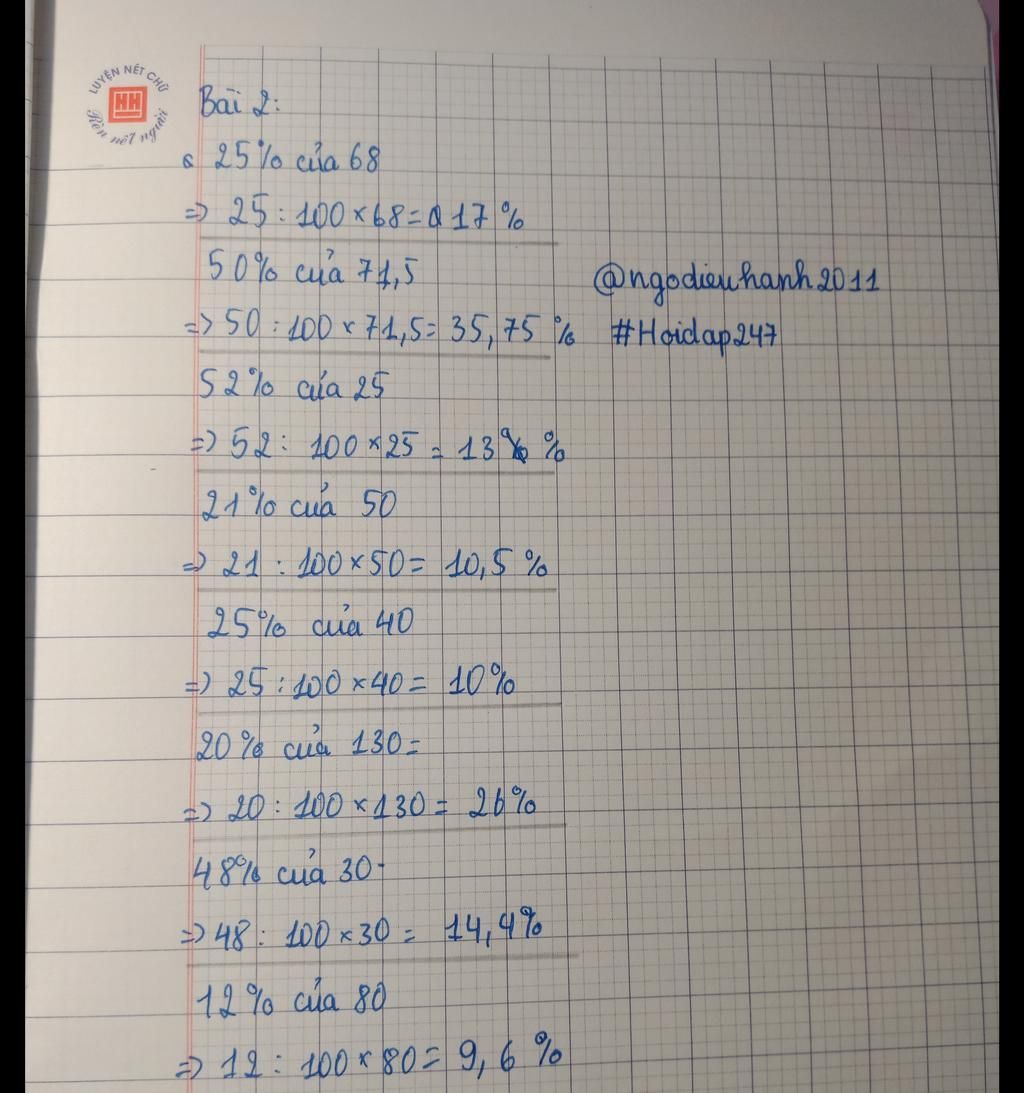 LUYỆN NÉT CHỮ
HH
Rèn nết người
Bài 2:
25% của 68
=> 25 : 100 × 68 = 17 %
50% của 71,5
@ngodieuhanh2011
=> 50 : 100 × 71,5 = 35,75 %
#Hoidap247
52% của 25
=> 52 : 100 × 25 = 13 %
21% của 50
=> 21 : 100 × 50 = 10,5 %
25% của 40
=> 25 : 100 × 40 = 10%
20% của 130 =
=> 20 : 100 × 130 = 26%
48% của 30
=> 48 : 100 × 30 = 14,4%
12% của 80
=> 12 : 100 × 80 = 9,6 %